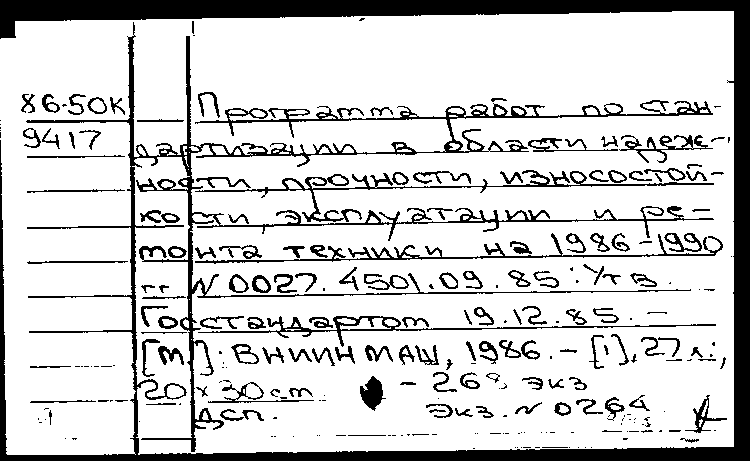 86-50К Программа работ по стан-
9417 дартизации в области надеж-
ности, прочности, износостой-
кости, эксплуатации и ре-
монта техники на 1986-1990
гг N 0027.4501.09.85: Утв.
Госстандартом 19.12.85. –
[М.]: ВНИИНМАШ, 1986. – [1], 27 л.;
20 х 30 см. – 268 экз
ДСП. экз. N 0264